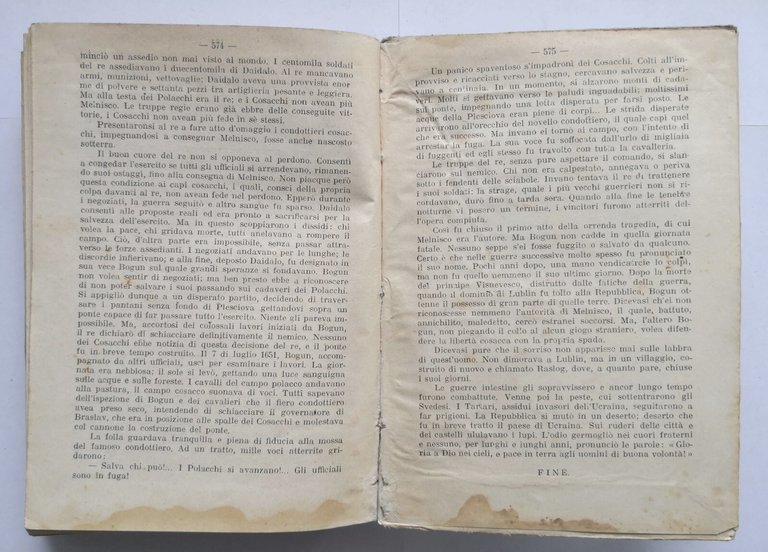 — 574 —
minciò un assedio non mai visto al mondo. I centomila soldati
del re assediavano i duecentomila di Daidalo. Al re mancavano
armi, munizioni, vettovaglie; Daidalo aveva una provvista enor
me di polvere e settanta pezzi tra artiglieria pesante e leggera.
Ma alla testa dei Polacchi era il re; e i Cosacchi non avean più
Melnisco. Le truppe regie erano già ebbre delle conseguite vit-
torie, i Cosacchi non avean più fede in sè stessi.
Presentaronsi al re a fare atto d'omaggio i condottieri cosac-
chi, impegnandosi a consegnar Melnisco, fosse anche nascosto
sotterra.
Il buon cuore del re non si opponeva al perdono. Consentì
a congedar l'esercito se tutti gli ufficiali si arrendevano, rimanen-
do suoi ostaggi, fino alla consegna di Melnisco. Non piacque però
questa condizione ai capi cosacchi, i quali, consci della propria
colpa davanzi al re, non avean fede nel perdono. Epperò durante
i negoziati, la guerra seguitò e altro sangue fu sparso. Daidalo
consentì alle proposte reali ed era pronto a sacrificarsi per la
salvezza dell'esercito. Ma in questo scoppiarono i dissidi: chi
volea la pace, chi gridava morte, tutti anelavano a rompere il
campo. Ciò, d'altra parte era impossibile, senza passar attra-
verso le forze assedianti. I negoziati andavano per le lunghe; le
discordie infierivano; e alla fine, deposto Daidalo, fu designato in
sua vece Bogun sul quale grandi speranze si fondavano. Bogun
non volea sentir di negoziati; ma ben presto ebbe a riconoscere
di non poter salvare i suoi passando sui cadaveri dei Polacchi.
Si appigliò dunque a un disperato partito, decidendo di traver-
sare i pantani senza fondo di Plesciova gettandovi sopra un
ponte capace di far passare tutto l'esercito. Niente gli pareva im-
possibile. Ma, accortosi dei colossali lavori iniziati da Bogun,
il re dichiarò di schiacciare definitivamente il nemico. Nessuno
dei Cosacchi ebbe notizia di questa decisione del re, e il ponte
fu in breve tempo costruito. Il 7 di luglio 1651, Bogun, accom-
pagnato da altri ufficiali, uscì per esaminare i lavori. La gior-
nata era nebbiosa; il sole si levò, gettando una luce sanguigna
sulle acque e sulle foreste. I cavalli del campo polacco andavano
alla pastura, il campo cosacco suonava di voci. Tutti sapevano
dell'ispezione di Bogun e dei cavalieri che il fiero condottiero
avea preso seco, intendendo di schiacciare il governatore di
Braslav, che era in posizione alle spalle dei Cosacchi e molestava
col cannone la costruzione del ponte.
La folla guardava tranquilla e piena di fiducia alla mossa
del famoso condottiero. Ad un tratto, mille voci atterrite gri-
darono:
— Salva chi può!... I Polacchi si avanzano!... Gli ufficiali
sono in fuga!
— 575 —
Un panico spaventoso s'impadronì dei Cosacchi. Colti all'im-
provviso e ricacciati verso lo stagno, cercavano salvezza e peri-
vano a centinaia. In un momento, si alzarono monti di cada-
veri. Molti si gettavano verso le paludi inguadabili; moltissimi
sul ponte, impegnando una lotta disperata per farsi posto. Le
acque della Plesciova eran piene di corpi... Le strida disperate
arrivarono all'orecchio del novello condottiero, il quale capì quel
che era successo. Ma invano ei tornò al campo, con l'intento di
arrestar la fuga. La sua voce fu soffocata dall'urlo di migliaia
di fuggenti ed egli stesso fu travolto con tutta la cavalleria.
Le truppe del re, senza pure aspettare il comando, si slan-
ciarono sul nemico. Chi non era calpestato, annegava o periva
sotto i fendenti delle sciabole. Invano tentava il re di trattenere
i suoi soldati: la strage, quale i più vecchi guerrieri non si ri-
cordavano, durò fino a tarda sera. Quando alla fine le tenebre
notturne vi posero un termine, i vincitori furono atterriti del-
l'opera compiuta.
Così fu chiuso il primo atto della orrenda tragedia, di cui
Melnisco era l'autore. Ma Bogun non cadde in quella giornata
fatale. Nessuno seppe s'ei fosse fuggito o salvato da qualcuno.
Certo è che nelle guerre successive molto spesso fu pronunciato
il suo nome. Pochi anni dopo, una mano vendicatrice lo colpì,
ma non fu quello nemmeno il suo ultimo giorno. Dopo la morte
del principe Visnevesco, distrutto dalle fatiche della guerra,
quando il dominio di Lublin fu tolto alla Repubblica, Bogun ot-
tenne il possesso di gran parte di quelle terre. Dicevasi ch'ei non
riconoscesse nemmeno l'autorità di Melnisco, il quale, battuto,
annichilito, maledetto, cercò estranei soccorsi. Ma, l'altero Bo-
gun, non piegando il collo al alcun giogo straniero, volea difen-
dere la libertà cosacca con la propria spada.
Dicevasi pure che il sorriso non apparisse mai sulle labbra
di quest'uomo. Non dimorava a Lublin, ma in un villaggio, co-
struito di nuovo e chiamato Raslog, dove, a quanto pare, chiuse
i suoi giorni.
Le guerre intestine gli sopravvissero e ancor lungo tempo
furono combattute. Venne poi la peste, cui sottentrarono gli
Svedesi. I Tartari, assidui invasori dell'Ucraina, seguitarono a
far prigioni. La Repubblica si mutò in deserto; deserto che
fu in breve tratto il paese di Ucraina. Sui ruderi delle città e
dei castelli ululavano i lupi. L'odio germogliò nei cuori fraterni
e nessuno, per lunghi e lunghi anni, pronunciò le parole: «Glo-
ria a Dio nei cieli, e pace in terra agli uomini di buona volontà!»
FINE.